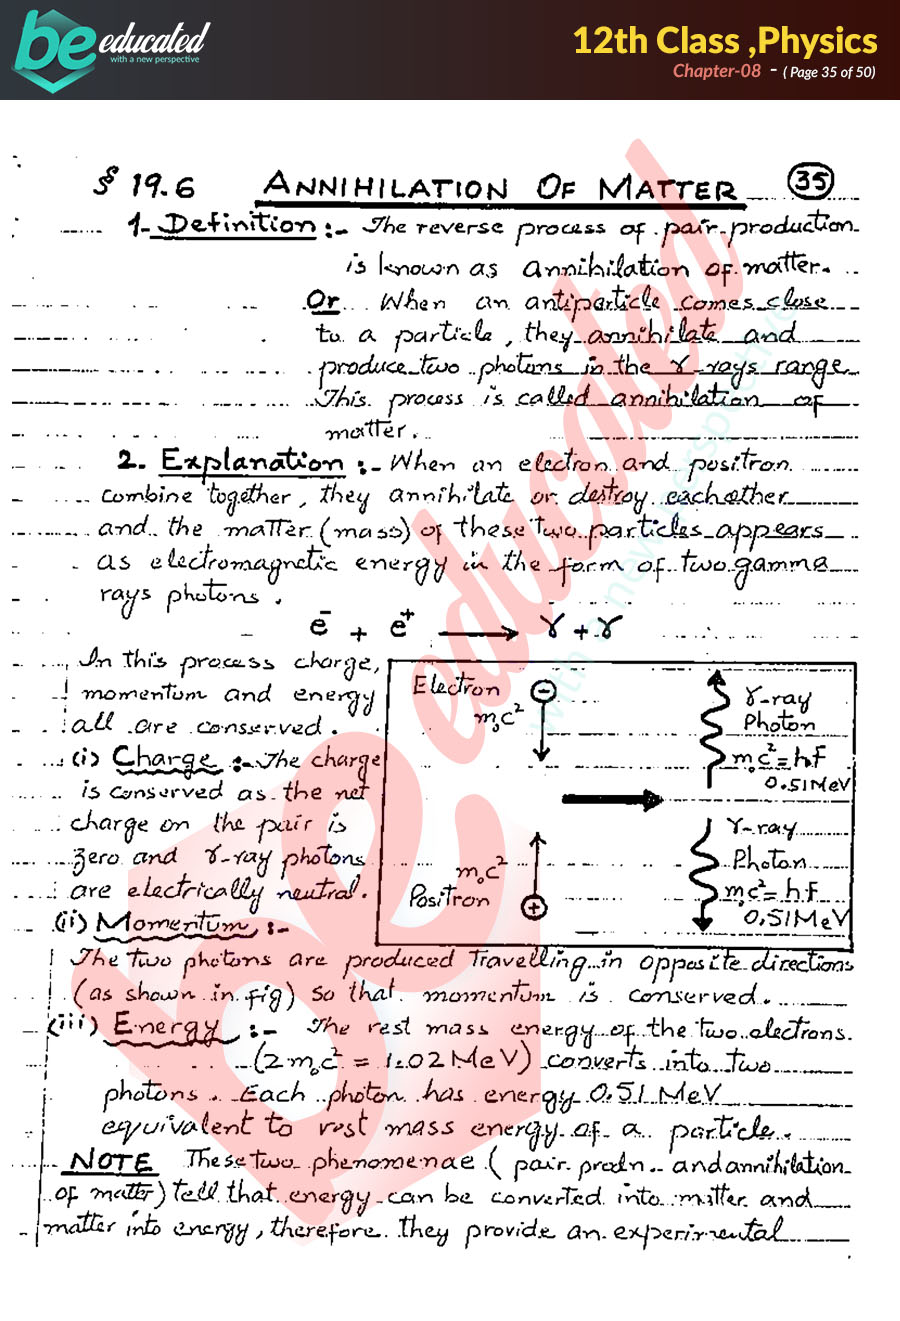 be educated
with a new perspective
12th Class ,Physics
Chapter-08 - ( Page 35 of 50)
§ 19.6 ANNIHILATION OF MATTER 35
1- Definition :- The reverse process of pair-production
is known as annihilation of matter.
Or When an antiparticle comes close
to a particle, they annihilate and
produce two photons in the γ-rays range
This process is called annihilation of
matter.
2. Explanation :- When an electron and positron
combine together, they annihilate or destroy eachother
and the matter (mass) of these two particles appears
as electromagnetic energy in the form of two gamma
rays photons.
e⁻ + e⁺ ⟶ γ + γ
In this process charge,
momentum and energy
all are conserved.
(i) Charge :- The charge
is conserved as the net
charge on the pair is
zero and γ-ray photons
are electrically neutral.
Electron
m₀c²
γ-ray
Photon
m₀c² = hf
0.51 MeV
γ-ray
Photon
m₀c² = hf
0.51 MeV
m₀c²
Positron
(ii) Momentum :-
The two photons are produced travelling in opposite directions
(as shown in fig) so that momentum is conserved.
(iii) Energy :- The rest mass energy of the two electrons
(2m₀c² = 1.02 MeV) converts into two
photons. Each photon has energy 0.51 MeV
equivalent to rest mass energy of a particle.
NOTE These two phenomenae ( pair prodn. and annihilation
of matter) tell that energy can be converted into matter and
matter into energy, therefore they provide an experimental
be educated
with a new perspective